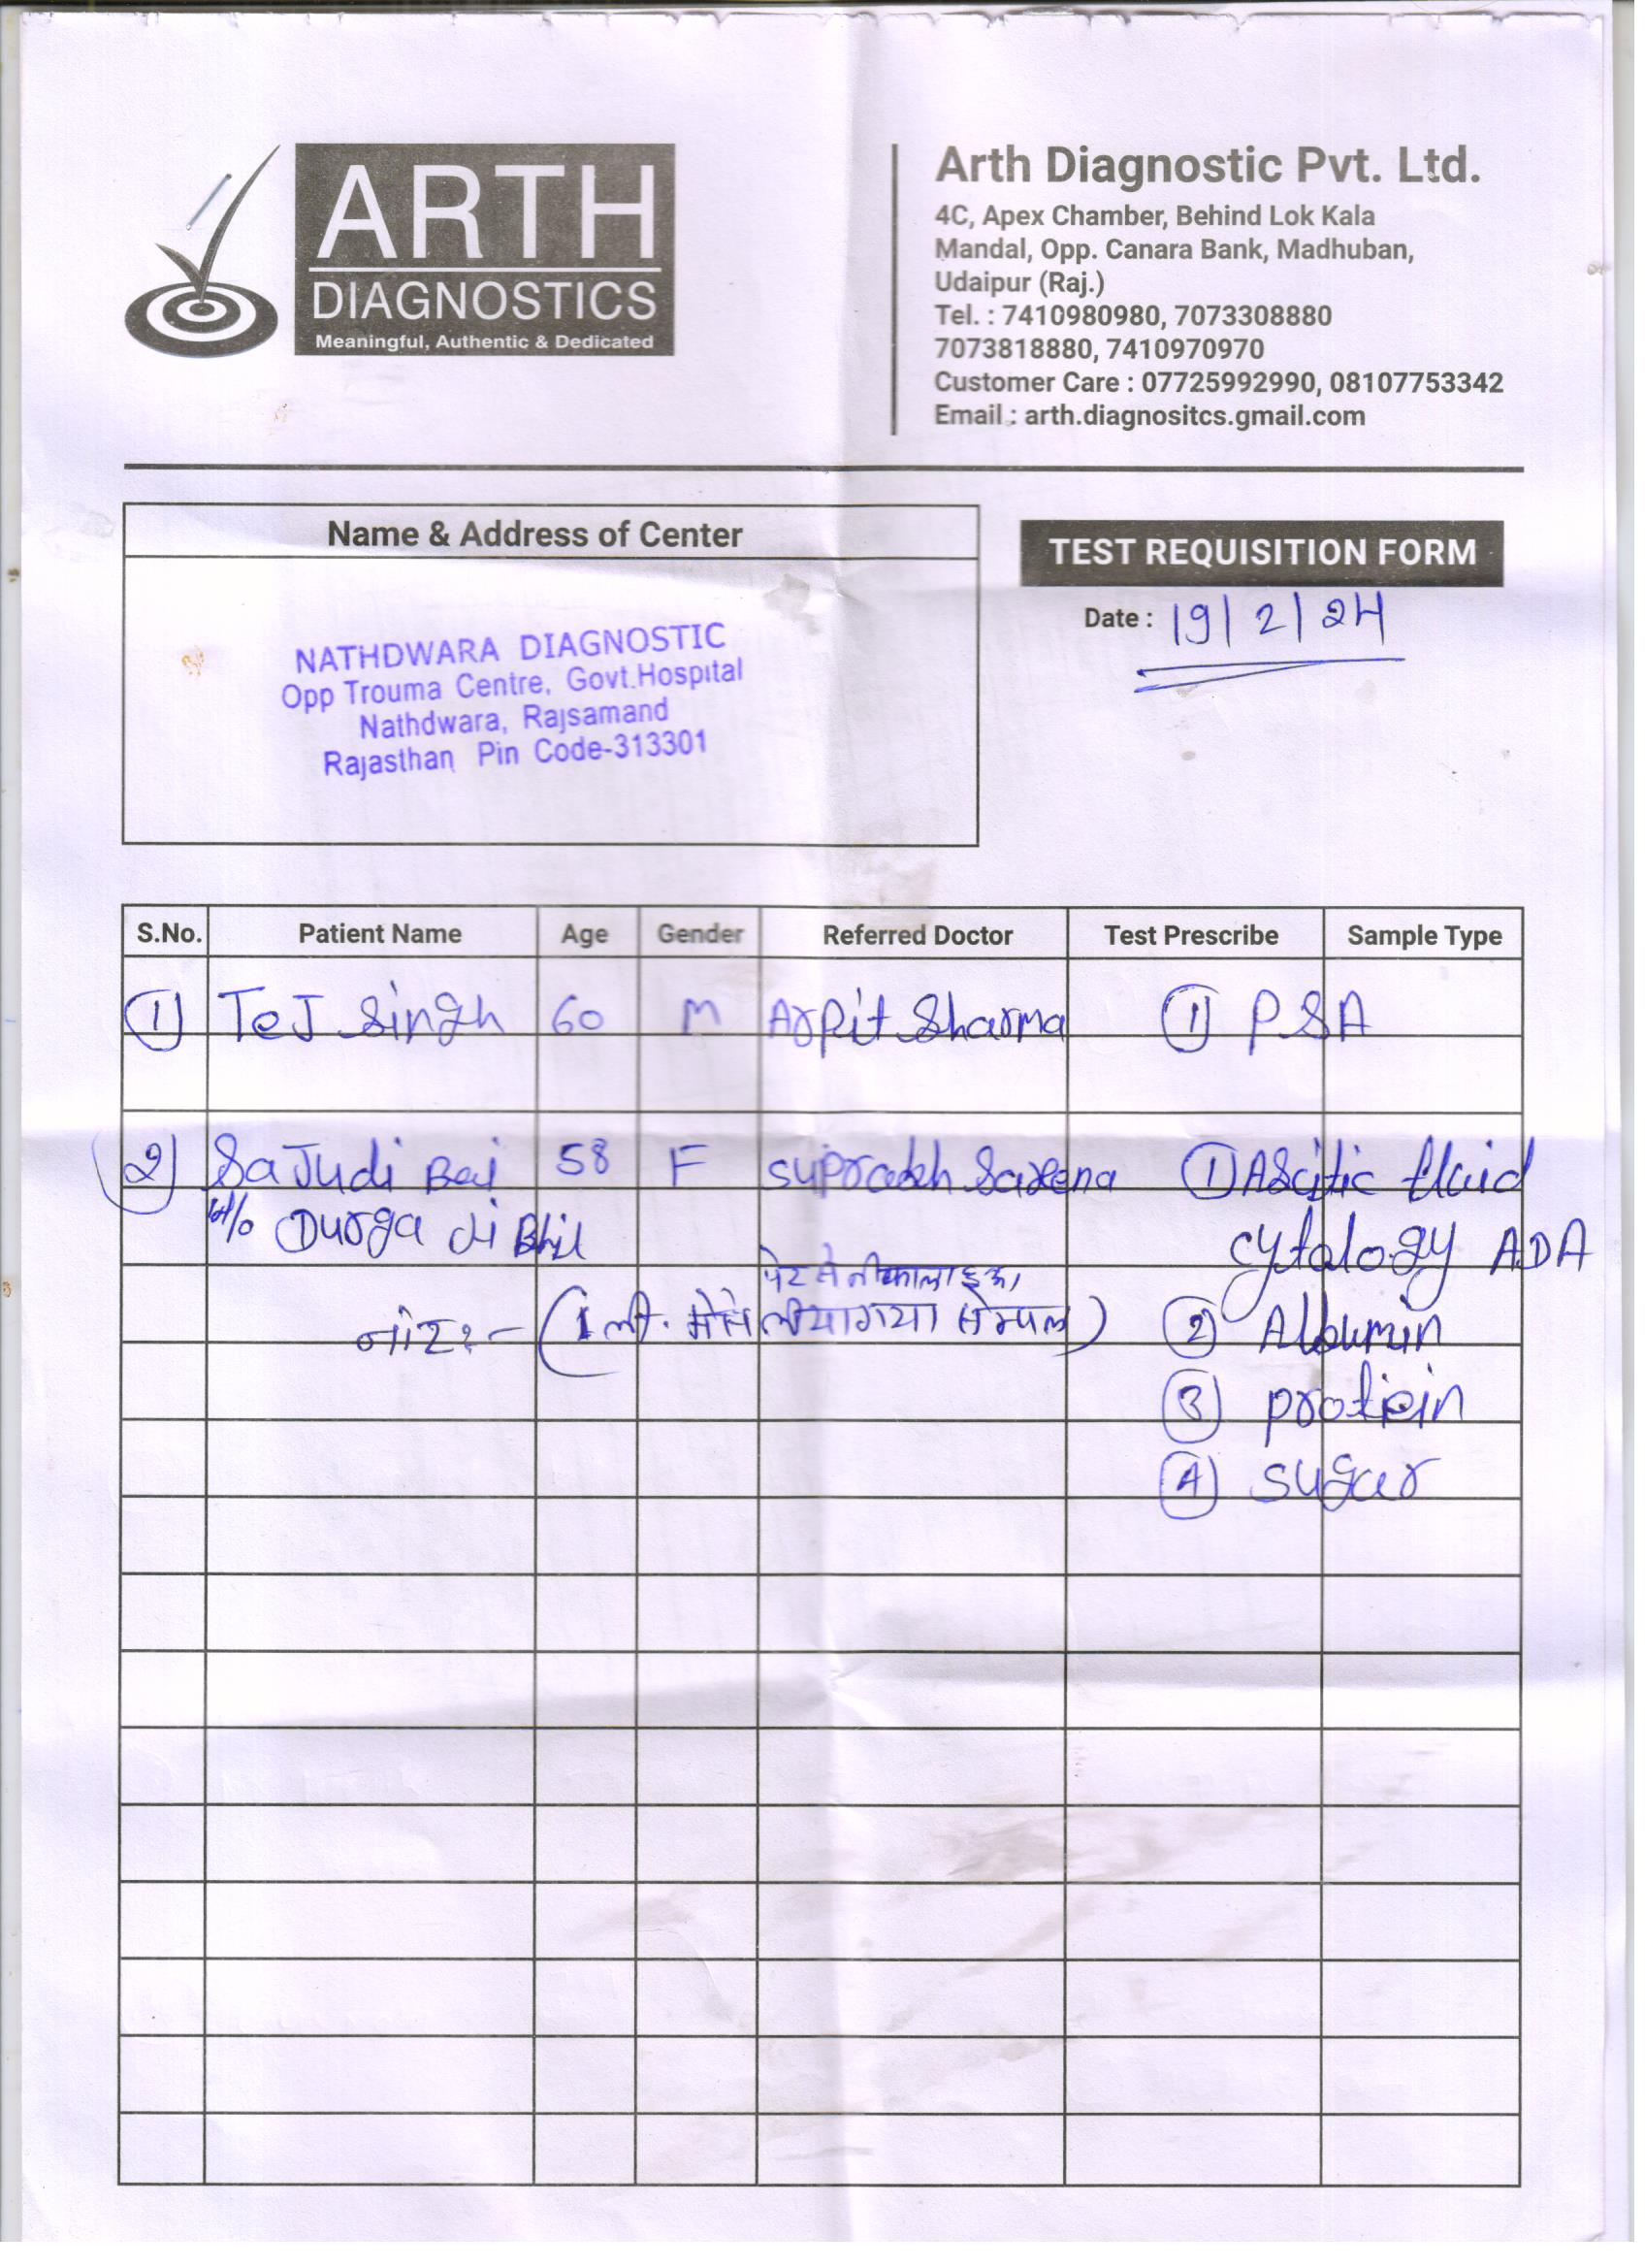 ARTH
DIAGNOSTICS
Meaningful, Authentic & Dedicated
Arth Diagnostic Pvt. Ltd.
4C, Apex Chamber, Behind Lok Kala
Mandal, Opp. Canara Bank, Madhuban,
Udaipur (Raj.)
Tel. : 7410980980, 7073308880
7073818880, 7410970970
Customer Care : 07725992990, 08107753342
Email : arth.diagnositcs.gmail.com
Name & Address of Center
NATHDWARA DIAGNOSTIC
Opp Trouma Centre, Govt.Hospital
Nathdwara, Rajsamand
Rajasthan Pin Code-313301
TEST REQUISITION FORM
Date : 19/2/24
S.No. Patient Name Age Gender Referred Doctor Test Prescribe Sample Type
1 TeJ Singh 60 M Arpit Sharma 1 PSA
2 SaJudi Bai 58 F Suprakh Saxena 1 Ascitic fluid
w/o Durga Ji Bhil cytology ADA
पेट से नीकाला हुआ
नोट:- (1 ली. मेसे लीयागया सेम्पल) 2 Albumin
3 protein
4 sugar